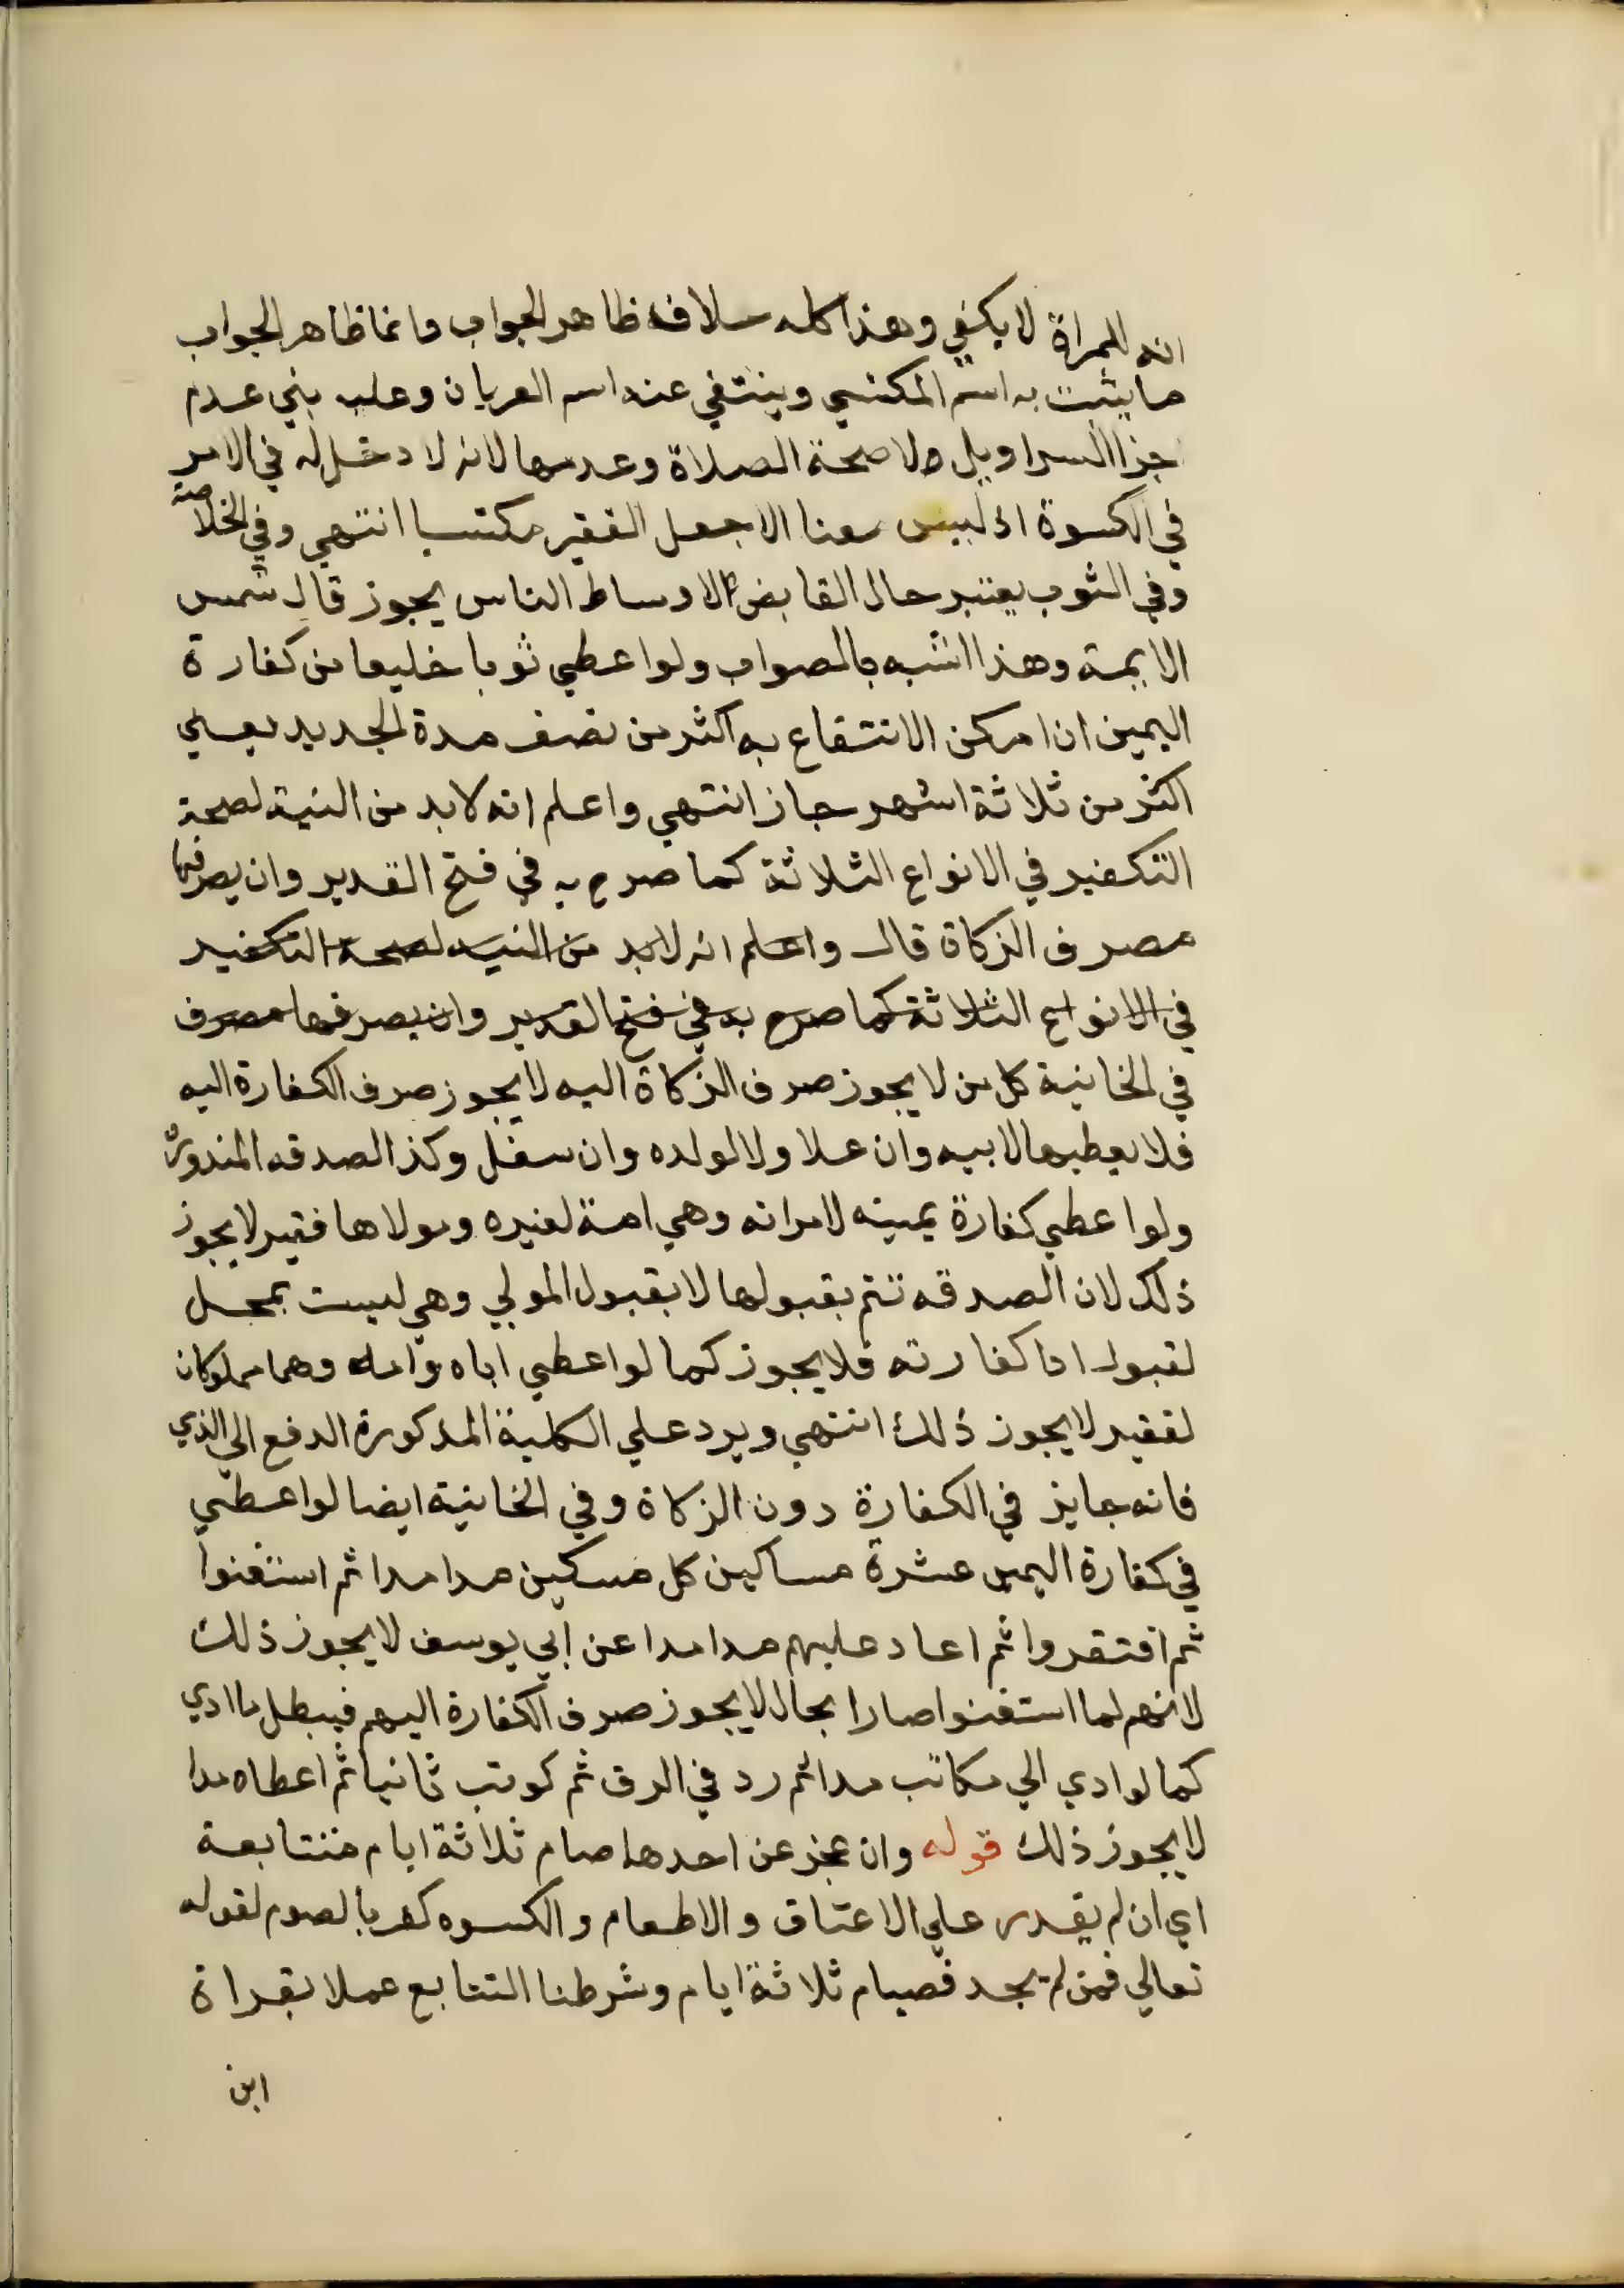 انه للمراة لا يكفي وهذا كله خلاف ظاهر الجواب وانما ظاهر الجواب
ما يثبت به اسم المكتسي وينتفي عنه اسم العريان وعليه بني عدم
جزا السراويل ولا صحة الصلاة وعدمها لانه لا دخل له في الامر
في الكسوة اذ ليس معنا الا جعل الفقير مكتسبا انتهي وفي الخلاصة
وفي الثوب يعتبر حال القابض الاوساط الناس يجوز قال شمس
الايمة وهذا اشبه بالصواب ولو اعطي ثوبا خليعا من كفارة
اليمين ان امكن الانتفاع به اكثر من نصف مدة الجديد يعني
اكثر من ثلاثة اشهر جاز انتهي واعلم انه لا بد من النية لصحة
التكفير في الانواع الثلاثة كما صرح به في فتح القدير وان يصرفها
مصرف الزكاة قال واعلم انه لابد من النيه لصحة التكفير
في الانواع الثلاثة كما صرح به في فتح القدير وان يصرفها مصرف
في الخانية كل من لا يجوز صرف الزكاة اليه لا يجوز صرف الكفارة اليه
فلا يعطيها لابيه وان علا ولا لولده وان سفل وكذا الصدقه المنذورة
ولو اعطي كفارة يمينه لامراته وهي امة لغيره ومولاها فقير لا يجوز
ذلك لان الصدقه تتم بقبولها لا بقبول المولي وهي ليست بمحل
لقبول ادا كفارته فلا يجوز كما لو اعطي اباه وامه وهما مملوكان
لفقير لا يجوز ذلك انتهي ويرد علي الكلية المذكورة الدفع الي الذي
فانه جايز في الكفارة دون الزكاة وفي الخانية ايضا لو اعطي
في كفارة اليمين عشرة مساكين كل مسكين مدا مدا ثم استغنوا
ثم افتقروا ثم اعاد عليهم مدا مدا عن ابي يوسف لا يجوز ذلك
لانهم لما استغنوا صارا بحال لا يجوز صرف الكفارة اليهم فيبطل ما ادي
كما لو ادي الي مكاتب مدا ثم رد في الرق ثم كوتب ثانيا ثم اعطاه مدا
لا يجوز ذلك قوله وان عجز عن احدها صام ثلاثة ايام متتابعة
اي ان لم يقدر علي الاعتاق والاطعام والكسوه كفر بالصوم لقوله
تعالي فمن لم يجد فصيام ثلاثة ايام وشرطنا التتابع عملا بقراة
ابن